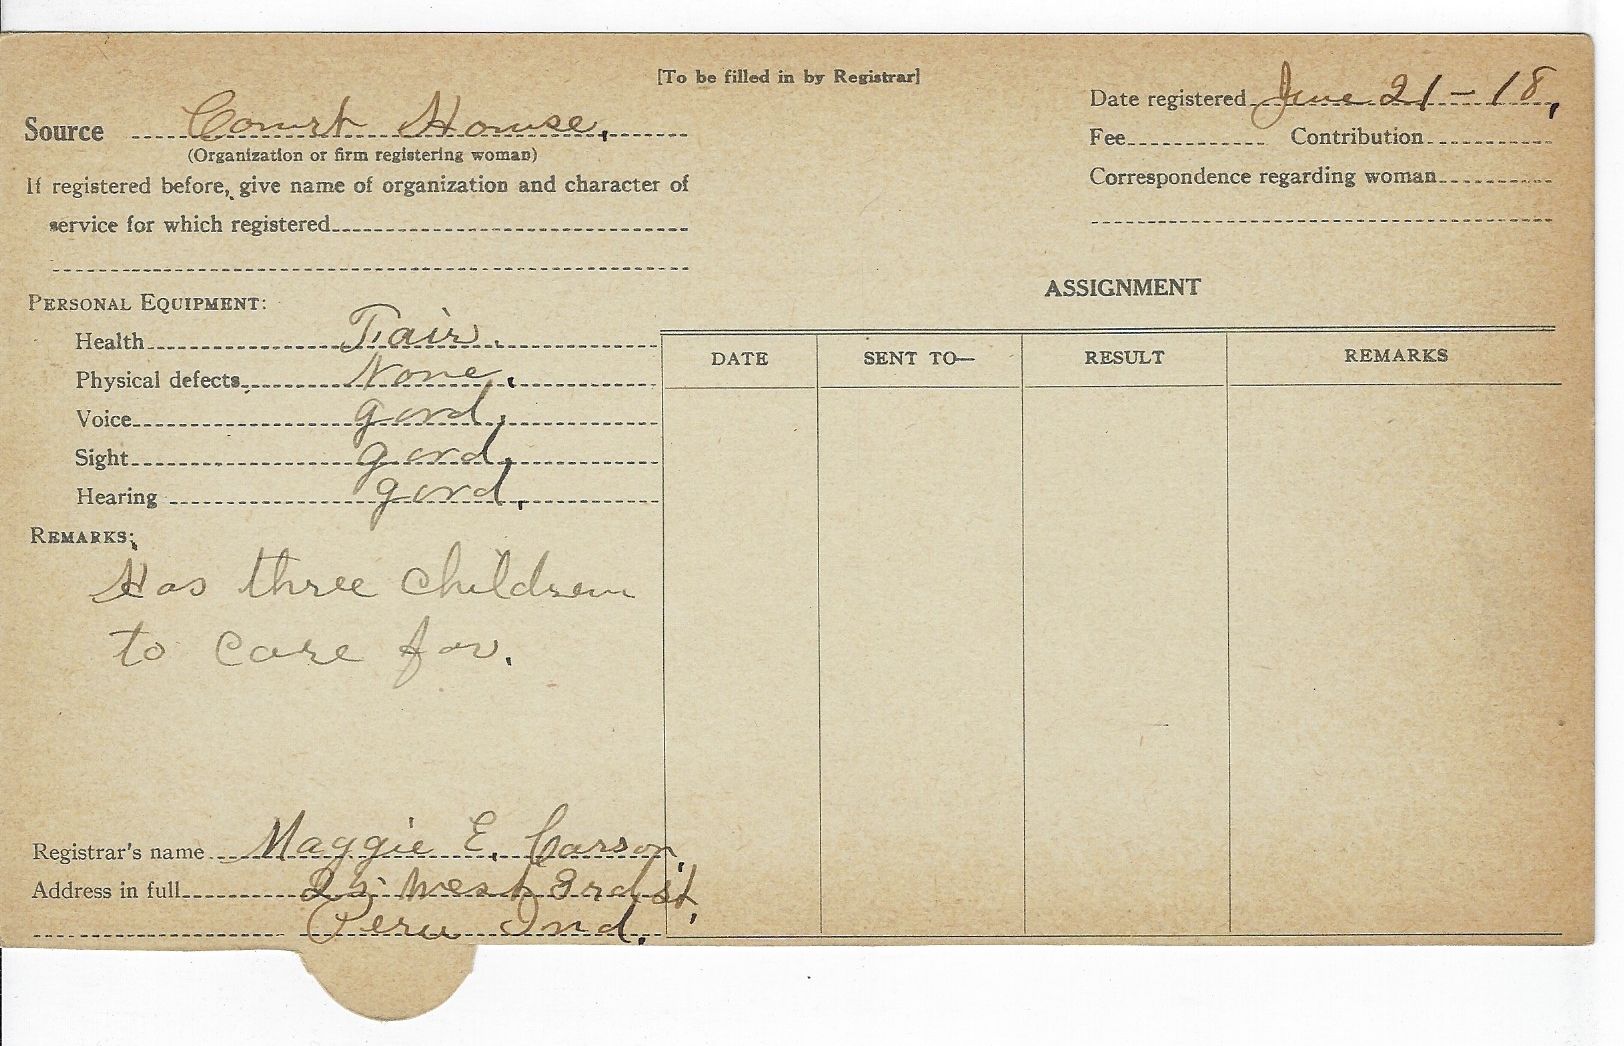 [To be filled in by Registrar]
Source Court House.
(Organization or firm registering woman)
If registered before, give name of organization and character of
service for which registered
Date registered June 21-18,
Fee Contribution
Correspondence regarding woman
PERSONAL EQUIPMENT:
Health Fair.
Physical defects None.
Voice good,
Sight good,
Hearing good,
REMARKS:
Has three children
to care for.
ASSIGNMENT
DATE SENT TO— RESULT REMARKS
Registrar's name Maggie E. Carson,
Address in full 25 West 3rd st,
Peru Ind.